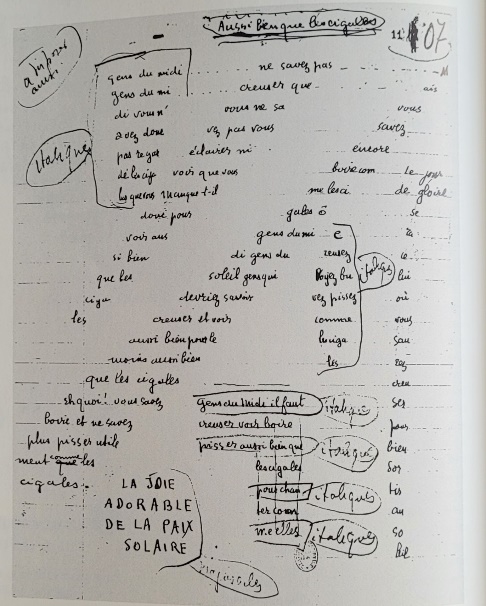 Aussi bien que les cigales
11 107
à disposer
ainsi
gens du midi ne savez pas
gens du mi creuser que ais
di vous n' vous ne sa vous
avez donc vez pas vous savez
pas regar éclairer ni encore
dé la ciga voir que vous boire com le jour
les que vous manque-t-il me les ci de gloire
italiques
donc pour gales ô se
voir aus gens du mi e ra
si bien di gens du reusez le
que les soleil gens qui voyez bu lui
italiques
ciga devriez savoir vez pissez où
les creuser et voir comme vous
aussi bien pour le les ciga sau
moins aussi bien les rez
que les cigales creu
eh quoi! vous savez gens du Midi il faut ser
italiques
boire et ne savez creuser voir boire pour
plus pisser utile pisser aussi bien que bien
italiques
ment comme les les cigales sor
cigales pour chan tir
italiques
ter comme au
me elles so
italiques
leil
LA JOIE
ADORABLE
DE LA PAIX
SOLAIRE
majuscules